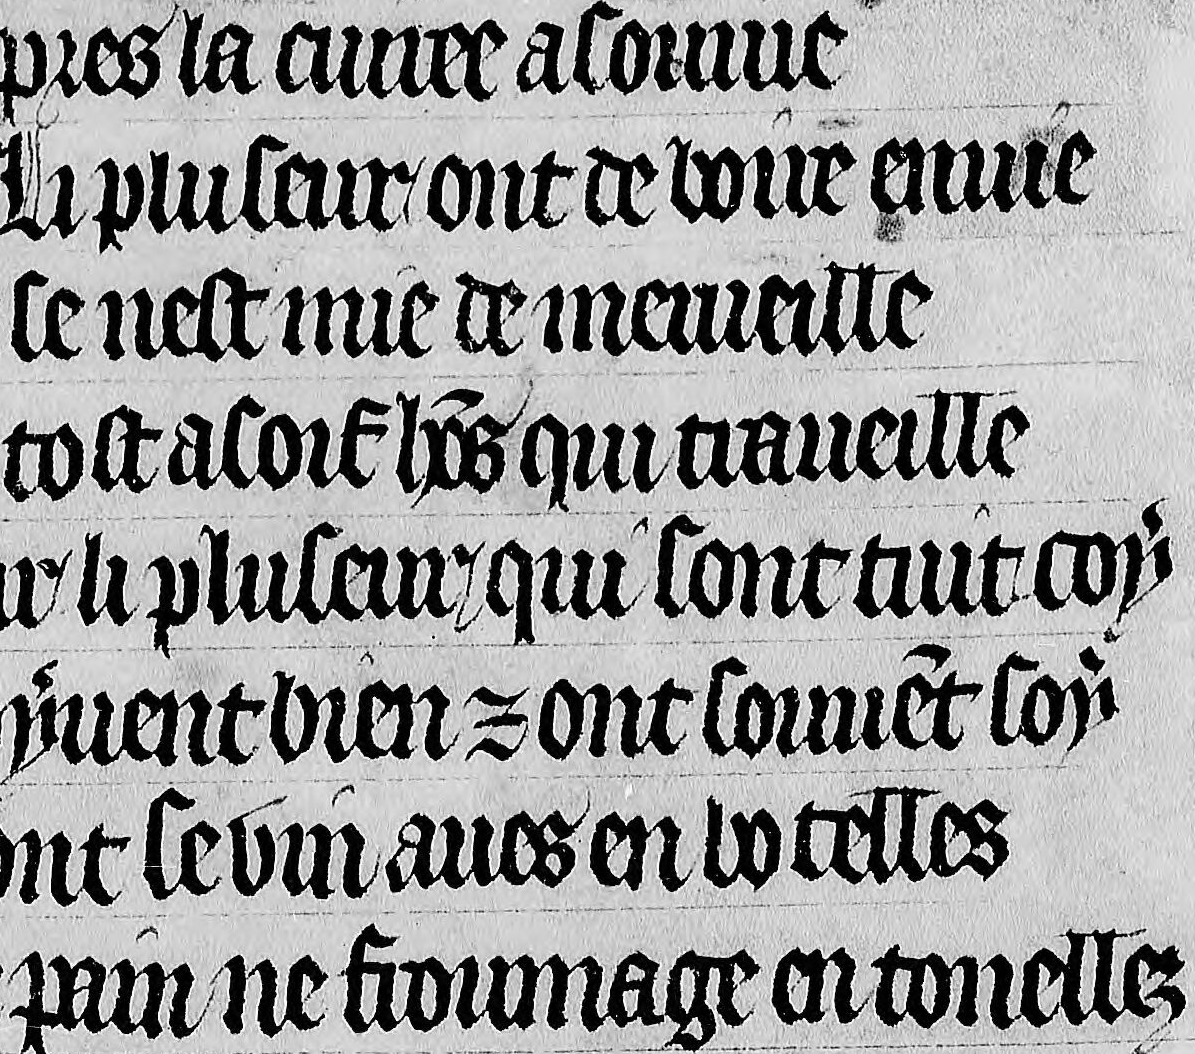 pres la curiee asouuie
Li pluseur ont de boire enuie
se nest mie de merueille
tost a soif hõs qui traueille
ur li pluseur qui sont tuit coy
yuent bien ⁊ ont souuẽt soy
ont se vin aues en botelles
pain ne froumage en tonellez